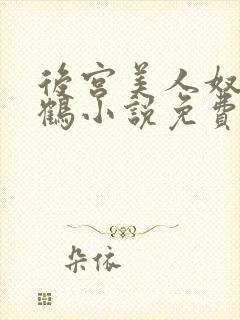 後宮美人奴
鶴小說免費
朵依